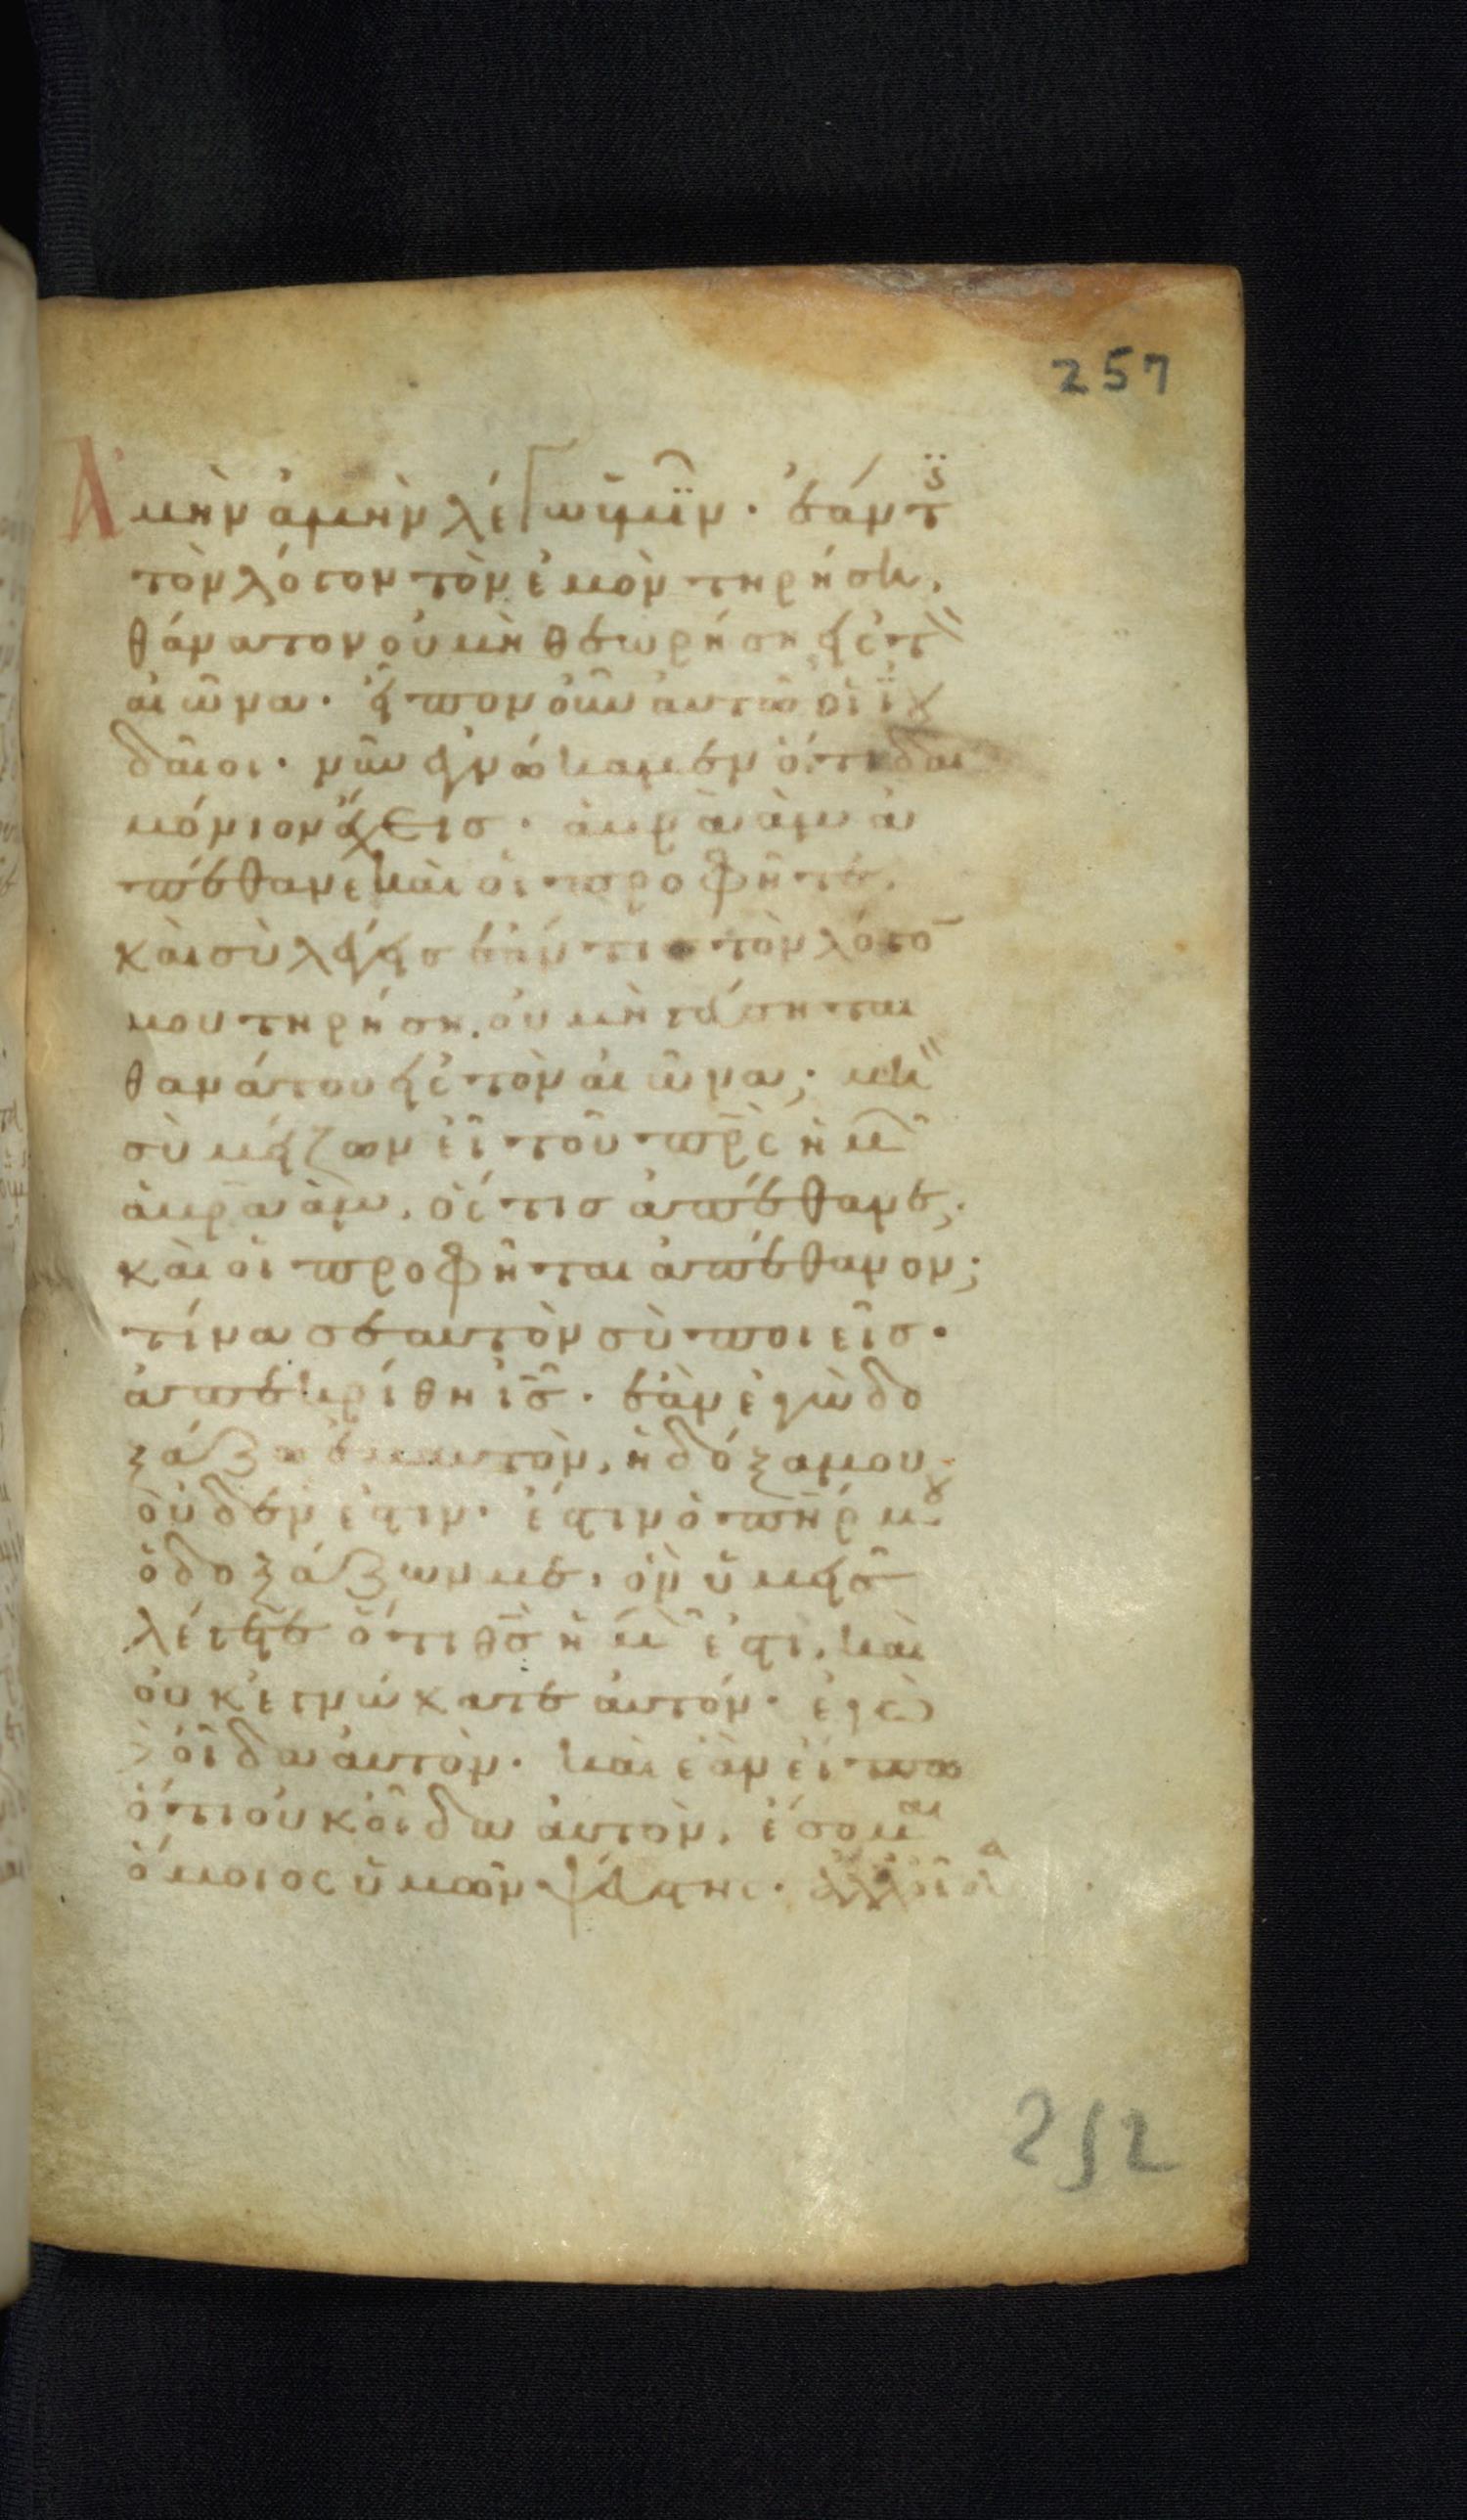 257
Ἀμὴν ἀμὴν λέγω ὑμῖν· ἐάν τις
τὸν λόγον τὸν ἐμὸν τηρήση,
θάνατον οὐ μὴ θεωρήση εἰς τὸν
αἰῶνα· εἶπον οὖν αὐτῶ οἱ ϊου
δαῖοι· νῦν ἐγνώκαμεν ὅτι δαι
μόνιον ἔχεις· ἁβραὰμ ἀ
πέθανε καὶ οἱ προφῆται,
καὶ σὺ λέγεις ἐάν τις τὸν λόγο̅
μου τηρήση, οὐ μὴ γεύσηται
θανάτου εἰς τὸν αἰῶνα; μὴ
σὺ μείζων εἶ τοῦ πρ̅ς ἡμῶν
ἁβραάμ, ὅστις ἀπέθανε;
καὶ οἱ προφῆται ἀπέθανον;
τίνα σεαυτὸν σὺ ποιεῖς·
ἀπεκρίθη ι̅ς̅· ἐὰν ἐγὼ δο
ξάζω ἐμαυτὸν, ἡ δόξα μου
οὐδέν ἐστιν· ἔστιν ὁ π̅η̅ρ μου
ὁ δοξάζων με, ὃν ὑμεῖς
λέγετε ὅτι θ̅ς̅ ἡμῶν ἐστι, καὶ
οὐκ ἐγνώκατε αὐτόν· ἐγὼ
οἶδα αὐτὸν· καὶ ἐὰν εἴπω
ὅτι οὐκ οἶδα αὐτὸν, ἔσομαι
ὅμοιος ὑμῶν ψεύστης· ἀλλ' οἶδα
252